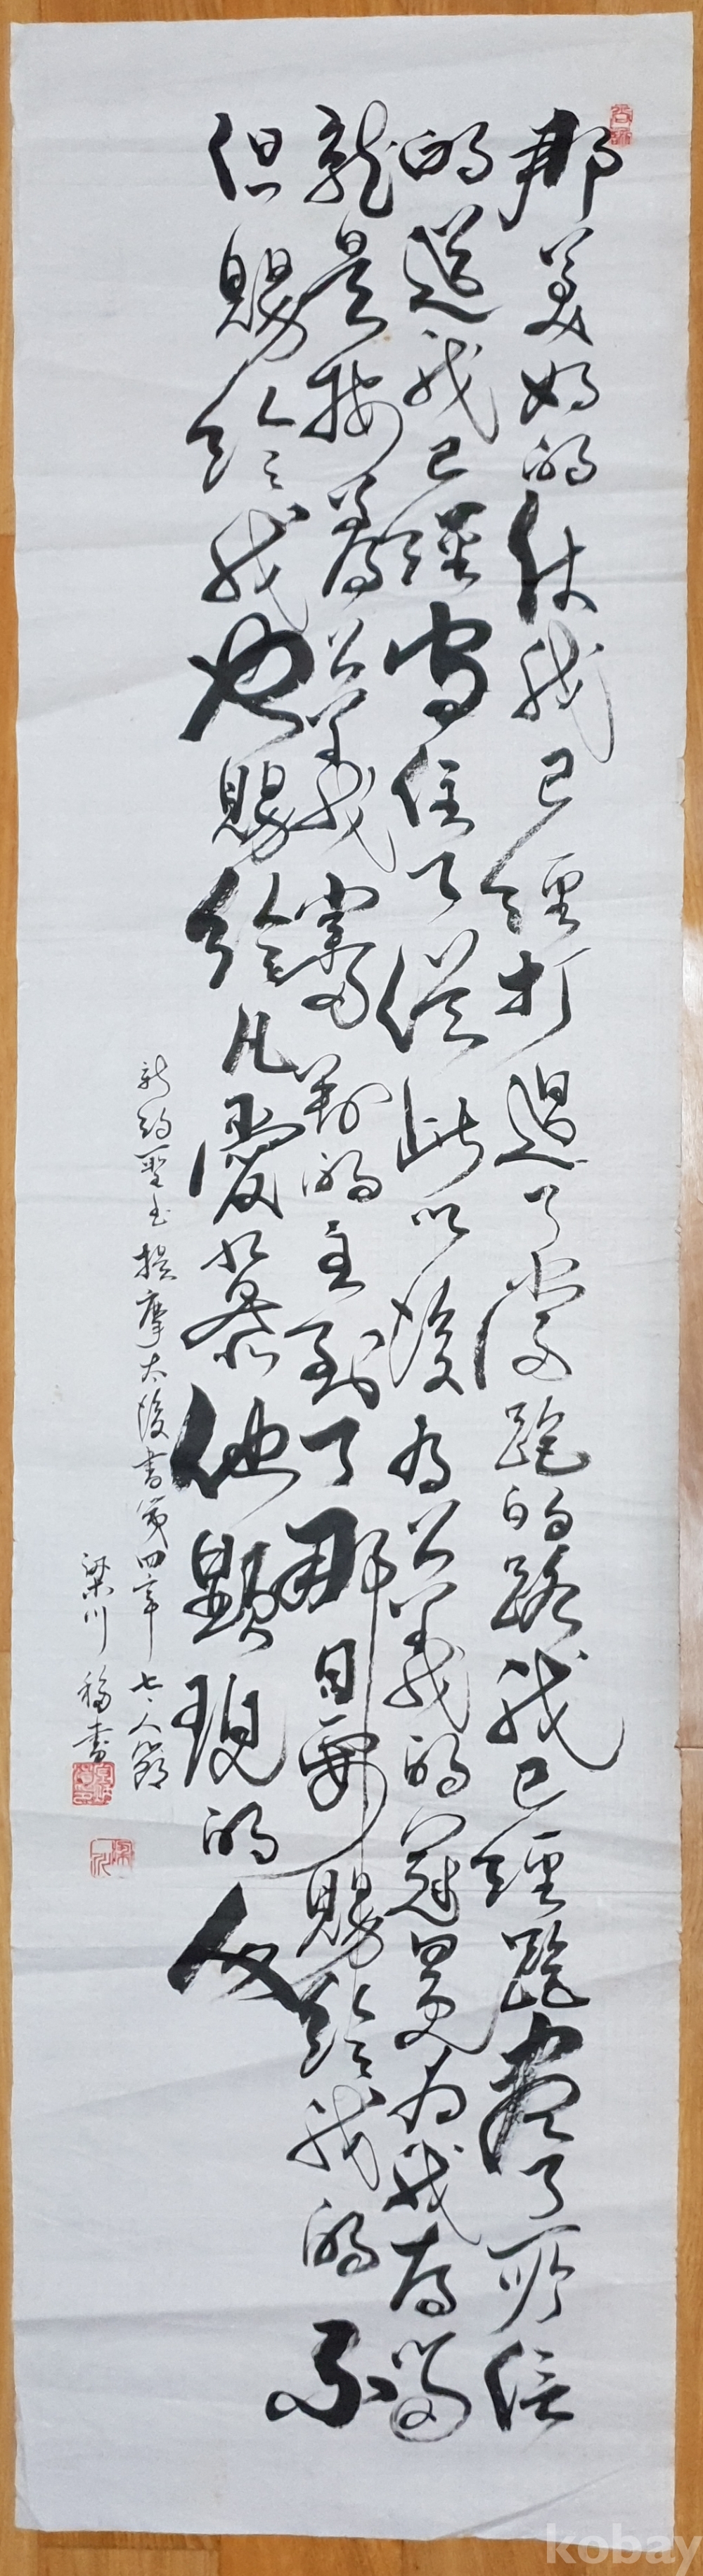 那美好的仗我已經打過了當跑的路我已經跑盡了所信
的道我已經守住了從此以後有公義的冠冕為我存留
就是按著公義審判的主到了那日要賜給我的不
但賜給我也賜給凡愛慕他顯現的人
新約聖書提摩太後書第四章七、八節
梁川 書
kobay